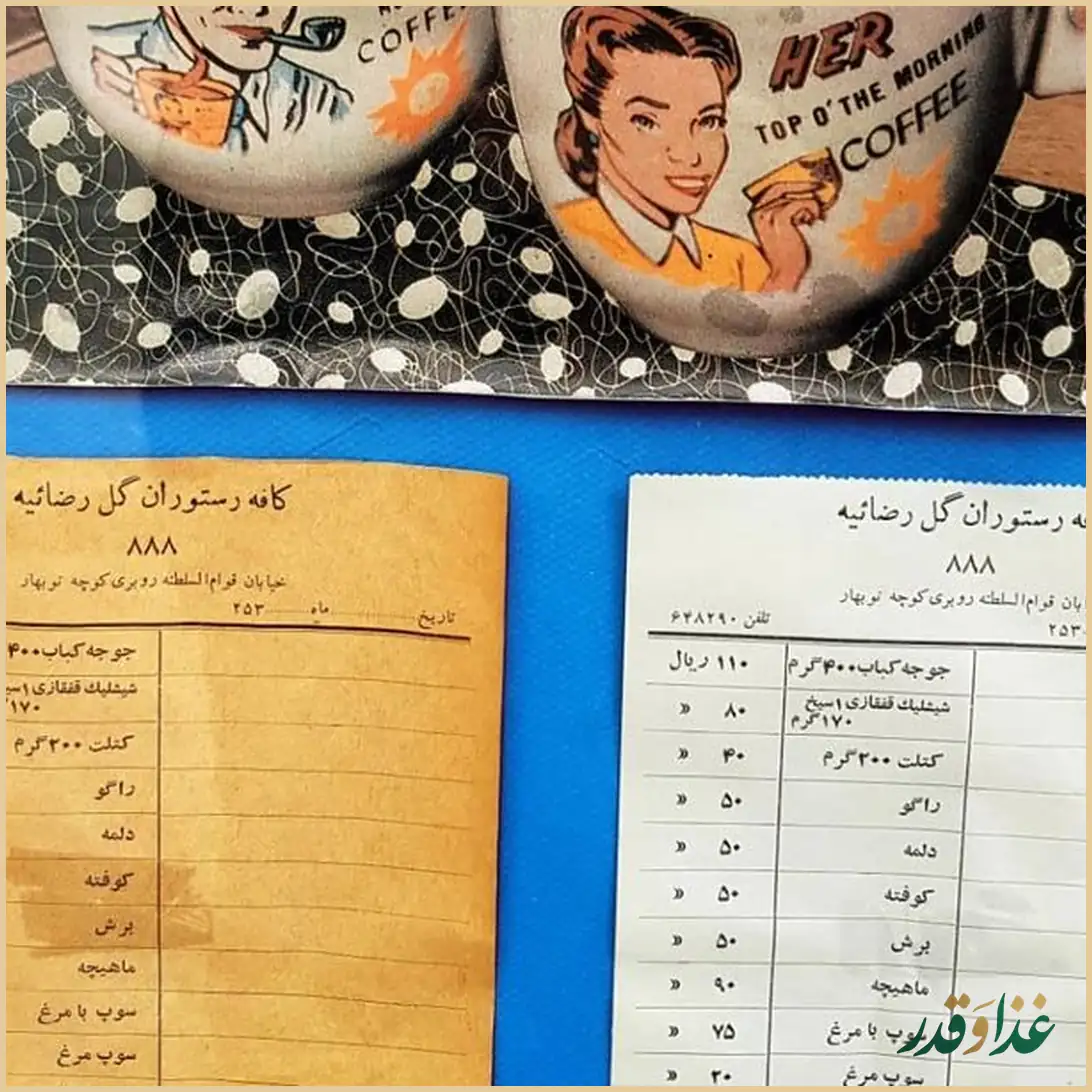 COFFEE
HER
TOP O' THE MORNING
COFFEE
کافه رستوران گل رضائیه
۸۸۸
خیابان قوام‌السلطنه روبری کوچه نوبهار
تاریخ ماه ۲۵۳
جوجه کباب ۴۰۰
شیشلیك قفقازی ۱ سیخ
۱۷۰
کتلت ۲۰۰ گرم
راگو
دلمه
کوفته
برش
ماهیچه
سوپ با مرغ
سوپ مرغ
رستوران گل رضائیه
۸۸۸
قوام‌السلطنه روبری کوچه نوبهار
۲۵۳
تلفن ۶۴۸۲۹۰
جوجه کباب ۴۰۰ گرم ۱۱۰ ریال
شیشلیك قفقازی ۱ سیخ ۱۷۰ گرم ۸۰ »
کتلت ۲۰۰ گرم ۴۰ »
راگو ۵۰ »
دلمه ۵۰ »
کوفته ۵۰ »
برش ۵۰ »
ماهیچه ۹۰ »
سوپ با مرغ ۷۵ »
سوپ مرغ ۲۰ »
غذا وَ قدر